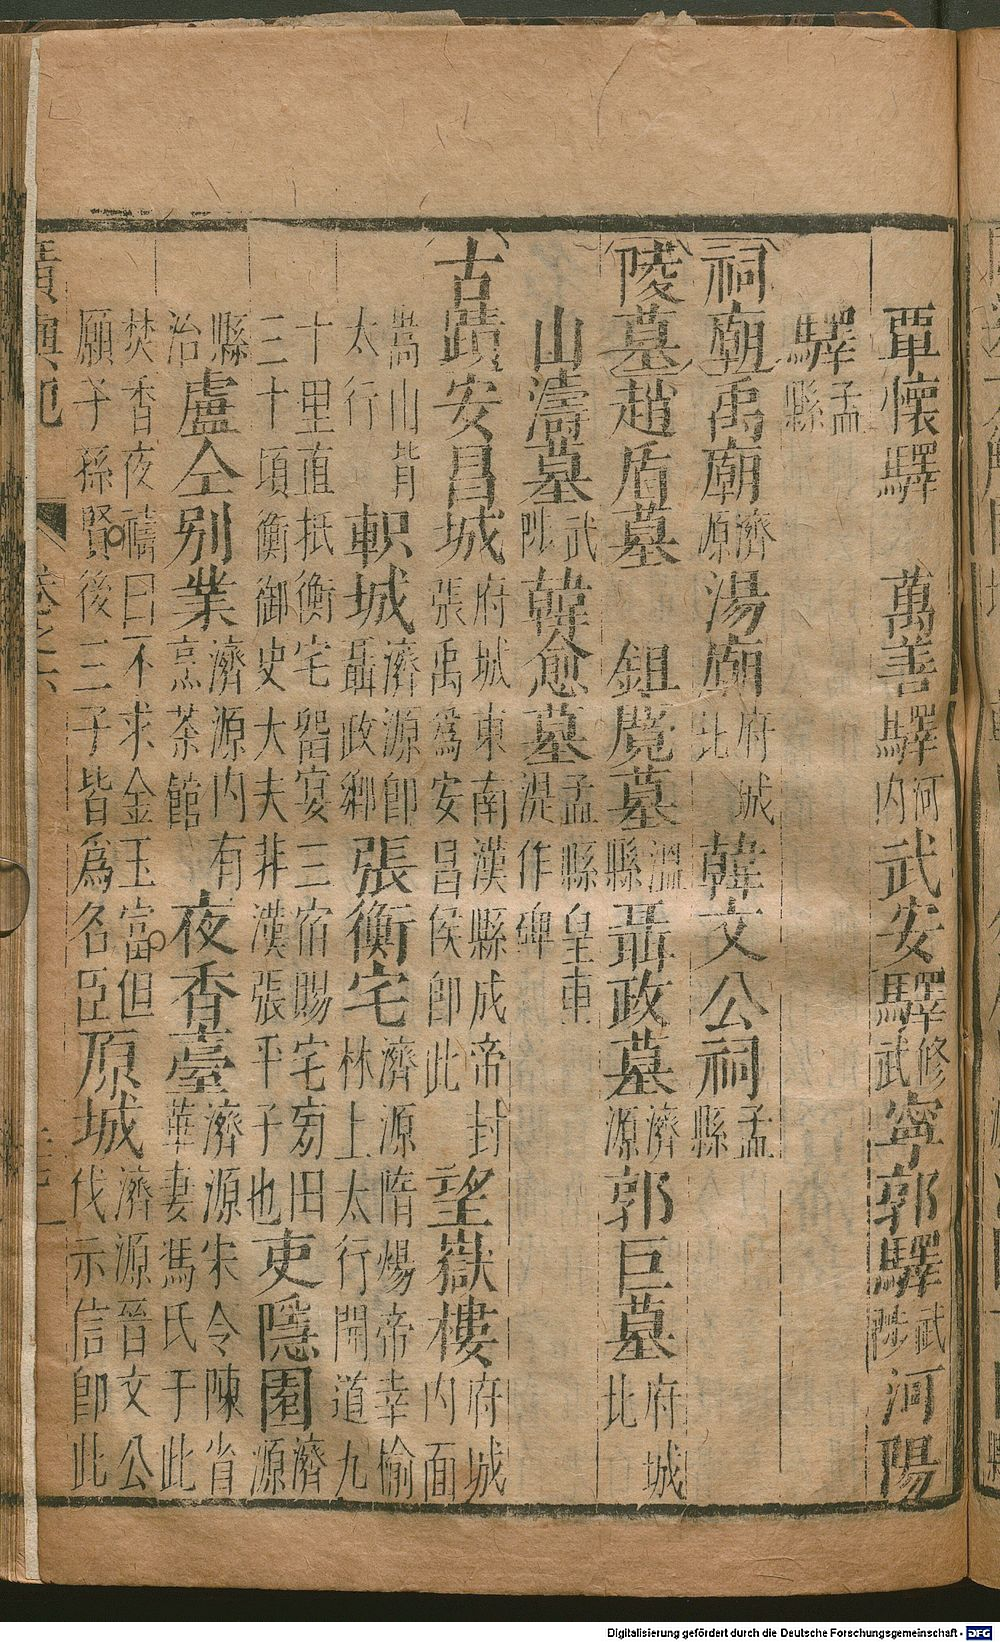 覃懷驛　萬善驛河內武安驛修武寧郭驛武陟河陽
驛孟縣
祠廟禹廟濟源湯廟府城北韓文公祠孟縣
陵墓趙盾墓　鉏麑墓溫縣聶政墓濟源郭巨墓府城北
山濤墓武陟韓愈墓孟縣皇甫湜作碑
古蹟安昌城府城東南漢縣成帝封張禹為安昌侯即此望嶽樓府城內面
嵩山背太行軹城濟源即聶政鄉張衡宅濟源隋煬帝幸榆林上太行開道九
十里直抵衡宅畱宴三宿賜宅旁田三十頃衡御史大夫非漢張平子也吏隱園濟源
縣治盧仝別業濟源內有烹茶館夜香臺濟源宋令陳省華妻馮氏于此
焚香夜禱曰不求金玉富但願子孫賢後三子皆為名臣原城濟源晉文公伐示信即此
廣輿記　卷之六
Digitalisierung gefördert durch die Deutsche Forschungsgemeinschaft - DFG